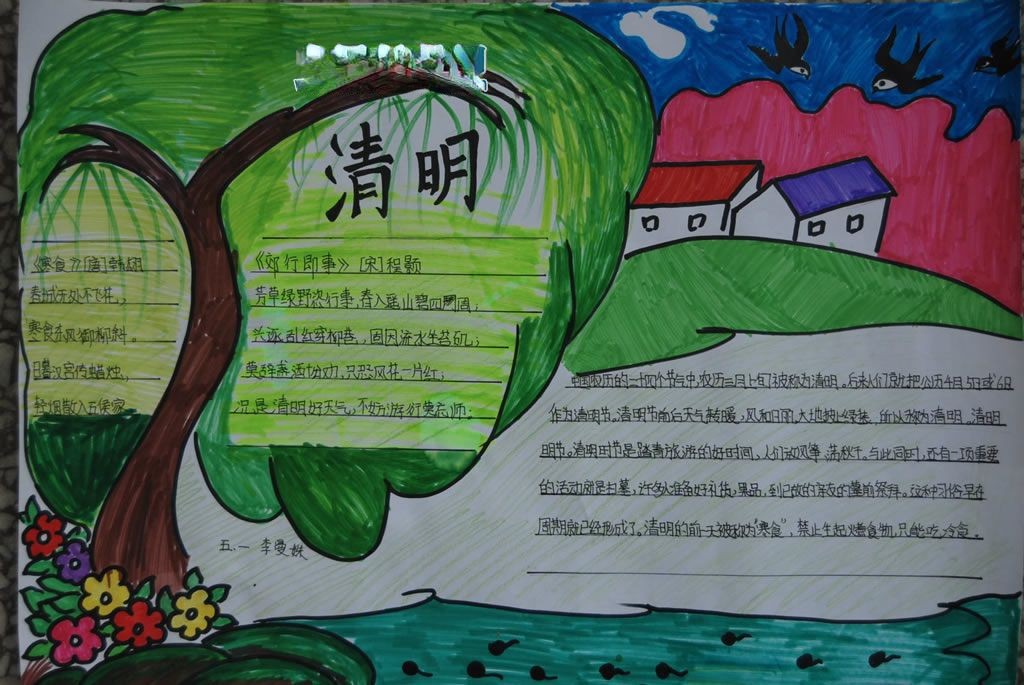 清明
《寒食》[唐]韩翃
春城无处不飞花,
寒食东风御柳斜。
日暮汉宫传蜡烛,
轻烟散入五侯家
《郊行即事》[宋]程颢
芳草绿野恣行事,春入遥山碧四周;
兴逐乱红穿柳巷,固因流水坐苔矶;
莫辞盏酒十分劝,只恐风花一片红;
况是清明好天气,不妨游衍莫忘归;
中国农历的二十四个节气中,农历三月上旬被称为清明。后来人们就把公历4月5日或6日
作为清明节。清明节前后天气转暖,风和日丽,大地披上绿装,所以称为清明。清明
明节。清明时节是踏青旅游的好时间,人们放风筝、荡秋千。与此同时,还有一项重要
的活动就是扫墓,许多人准备好礼品、果品,到已故的亲友的墓前祭拜。这种习俗早在
周期就已经形成了。清明的前一天被称为"寒食",禁止生起火煮食物,只能吃冷食。
五、一 李曼姝